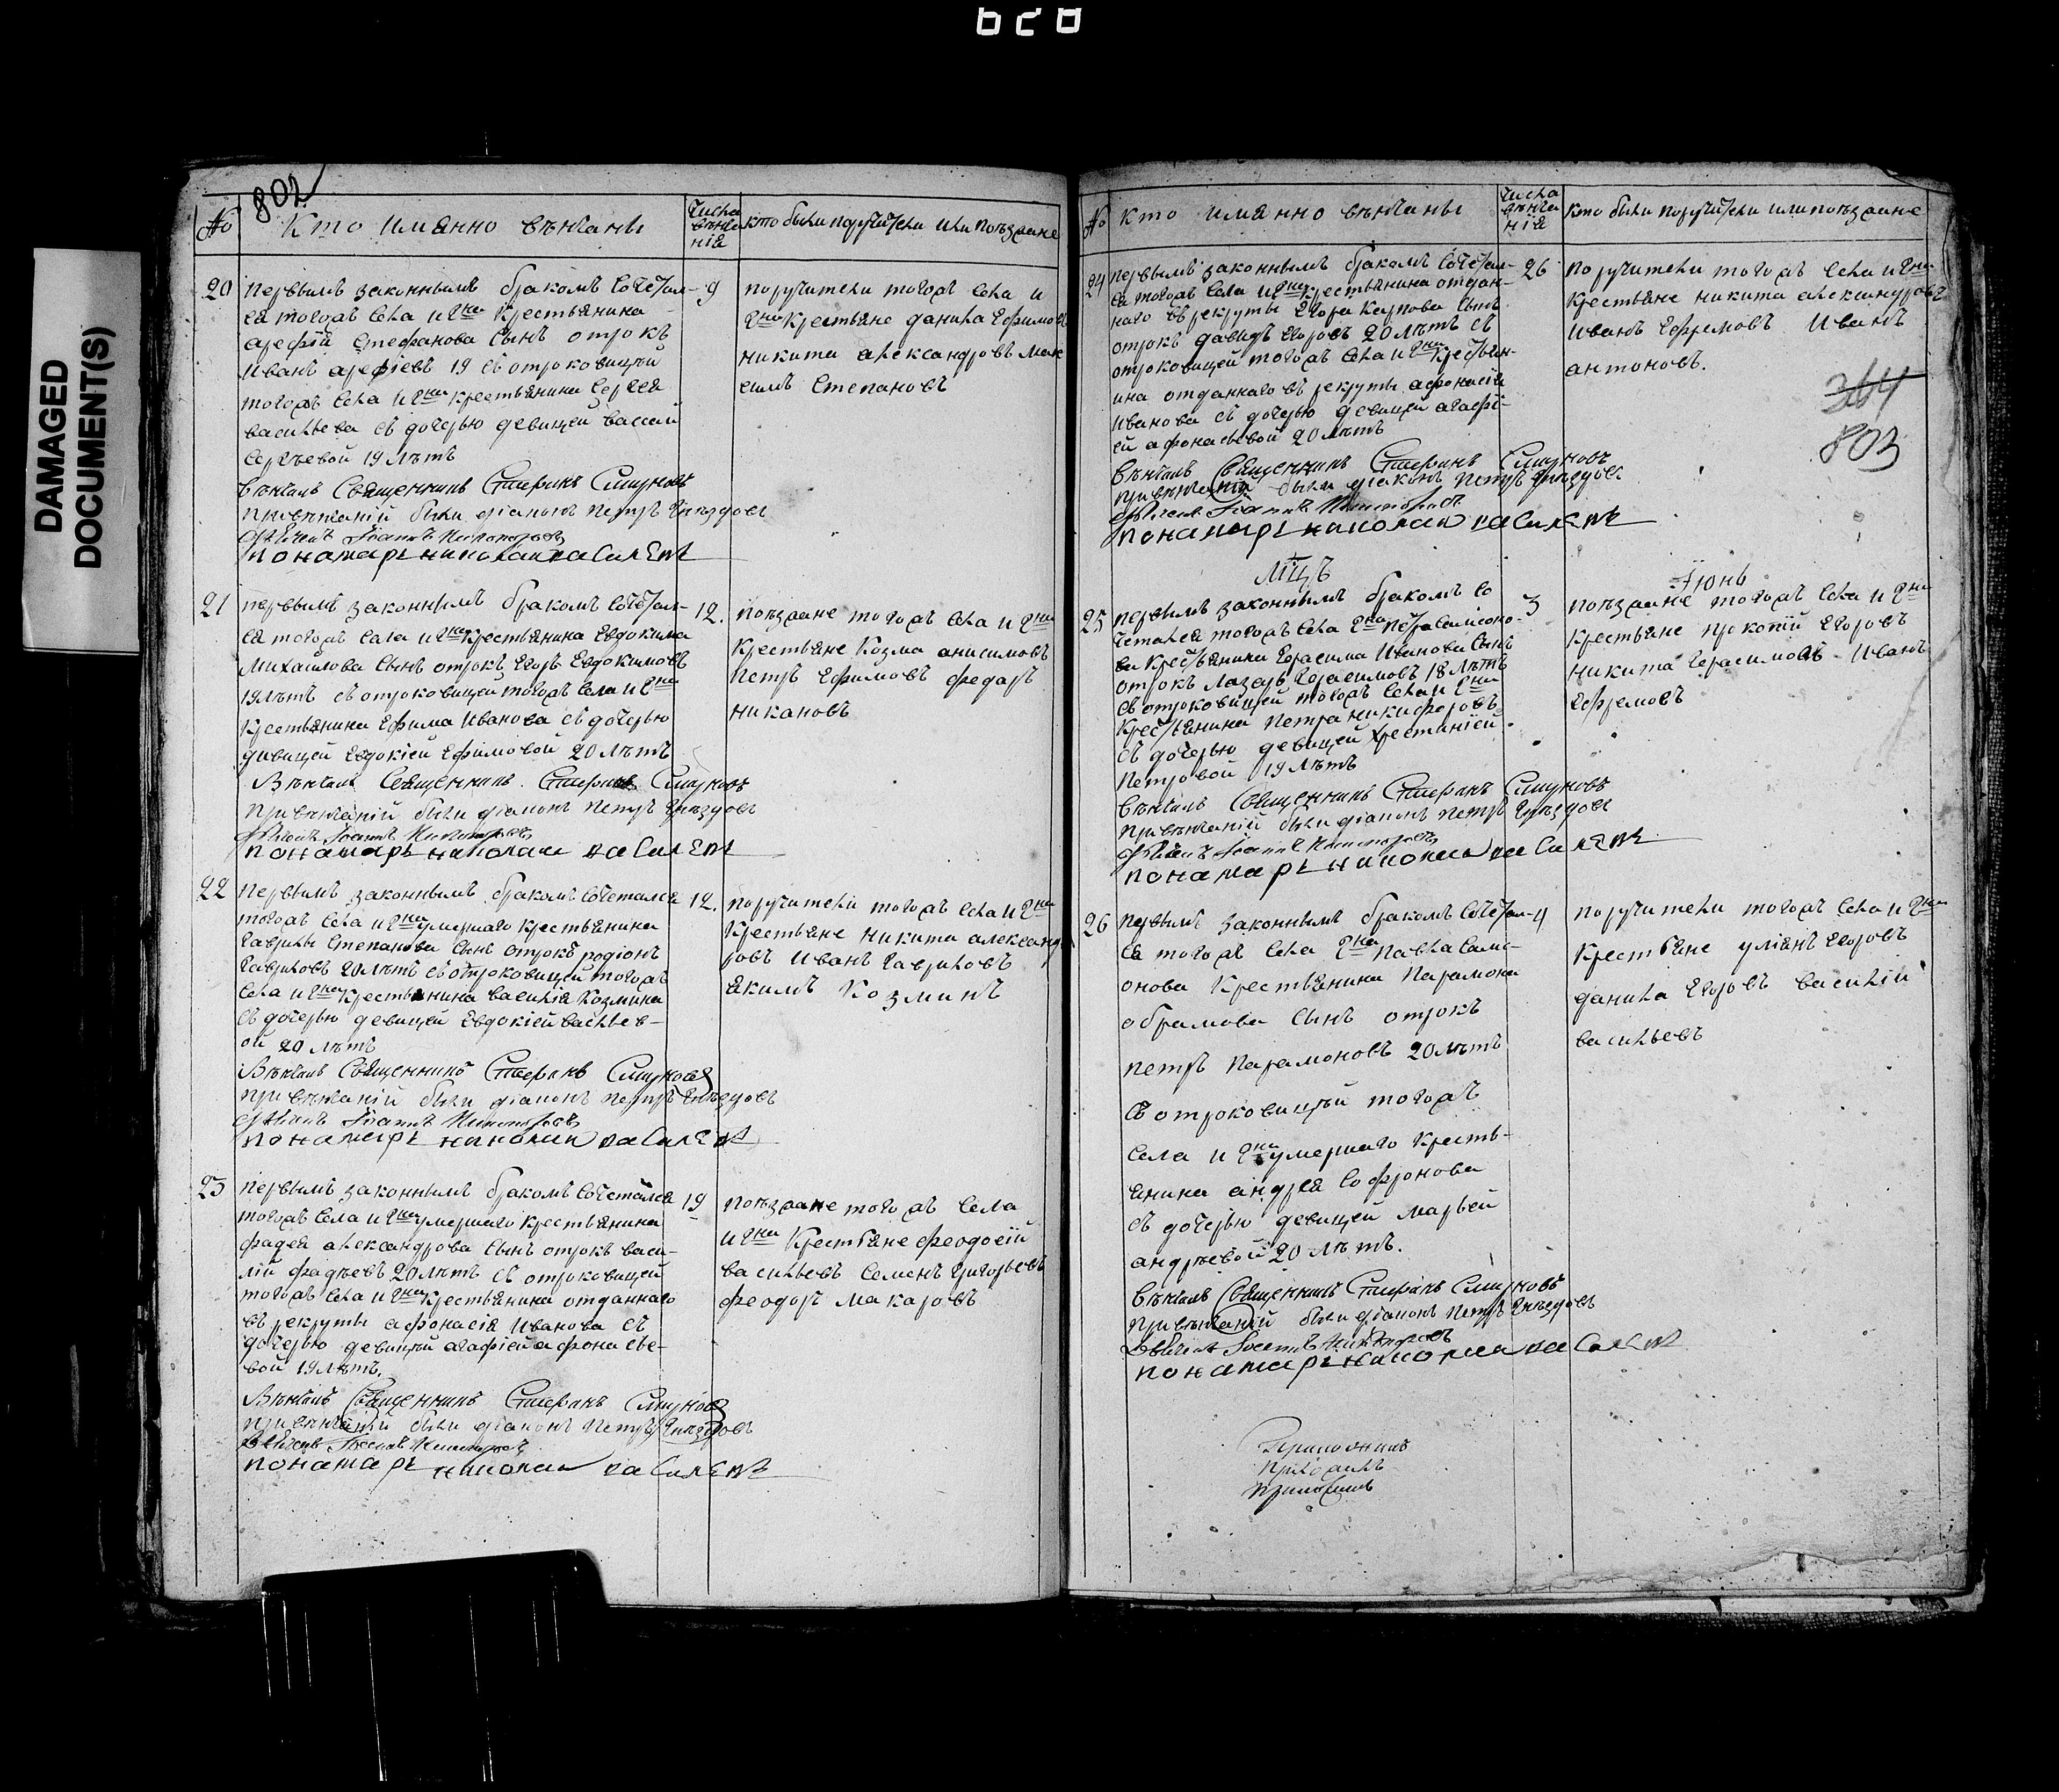 DAMAGED
DOCUMENT(S)
802
№
Кто имянно вѣнчаны
Числа
вѣнча
нія
кто были поручители или поѣзжане
20
Первымъ законнымъ бракомъ сочетал-
ся тогожъ села и Гжи Крестьянина
арефій Стефанова сынъ отрокъ
Иванъ арефіевъ 19 съ отроковицѣй
тогожъ села и Гжи крестьянина Сергея
васильева съ дочерью девицей вассой
Сергѣевой 19 лѣтъ
Вѣнчалъ Священникъ Стефанъ Смирновъ
При вѣнчаній были діаконъ Петръ Гнѣздовъ
Дьячекъ Іоаннъ Никифоровъ
Понамарь николаи васильевъ
9
поручители тогожъ села и
Гжи Крестьяне данила Ефимовъ
никита александровъ Мак
симъ Степановъ
21
первымъ законнымъ бракомъ сочетал-
ся тогожъ села и Гжи Крестьянина Евдокима
Михайлова сынъ отрокъ Егоръ Евдокимовъ
19 лѣтъ съ отроковицей тогожъ села и Гжи
Крестьянина Ефима Иванова съ дочерью
дивицей Евдокіей Ефимовой 20 лѣтъ
Вѣнчалъ Священникъ Стефанъ Смирновъ
При вѣнчаній были діаконъ Петръ Гнѣздовъ
Дьячекъ Іоаннъ Никифоровъ
Понамарь николаи васильевъ
12.
поѣзжане тогожъ села и Гжи
Крестьяне Козма анисимовъ
Петръ Ефимовъ федаръ
никановъ
22
Первымъ законнымъ бракомъ сочетался
тогожъ села и Гжи умершаго крестьянина
Гаврилы Степанова сынъ отрокъ родіонъ
Гавриловъ 20 лѣтъ съ отроковицей тогожъ
села и Гжи крестьянина василія Козмина
съ дочерью девицей Евдокіей васильев-
ой 20 лѣтъ
Вѣнчалъ Священникъ Стефанъ Смирновъ
При вѣнчаній были діаконъ Петръ Гнѣздовъ
Дьячекъ Іоаннъ Никифоровъ
Понамарь николаи васильевъ
12.
поручители тогожъ села и Гжи
Крестьяне никита александ
ровъ Иванъ Гавриловъ
якимъ Козминъ
23
Первымъ законнымъ бракомъ сочетался
тогожъ села и Гжи умершаго крестьянина
фадея александрова сынъ отрокъ васи-
лій фадѣевъ 20 лѣтъ съ отроковицей
тогожъ села и Гжи крестьянина отданнаго
въ рекруты афонасія Иванова съ
дочерью девицѣй агафіей афонасье-
вой 19 лѣтъ.
Вѣнчалъ Священникъ Стефанъ Смирновъ
При вѣнчаній были діаконъ Петръ Гнѣздовъ
Дьячекъ Іоаннъ Никифоровъ
Понамарь николаи васильевъ
19
поѣзжане тогожъ села
и Гжи Крестьяне феодосій
васильевъ Семенъ Григорьевъ
феодоръ макаровъ
№
кто имянно вѣнчаны
Числа
вѣнча
нія
кто были поручители или поѣзжане
24
первымъ законнымъ бракомъ сочетал-
ся тогожъ села и Гжи крестьянина отдан-
наго въ рекруты Егора Карпова сынъ
отрокъ давидъ Егоровъ 20 лѣтъ съ
отроковицей тогожъ села и Гжи крестьян-
ина отданнаго въ рекруты афонасія
Иванова съ дочерью девицей агафі-
ей афонасьевой 20 лѣтъ
Вѣнчалъ Священникъ Стефанъ Смирновъ
При вѣнчаній были діаконъ Петръ Гнѣздовъ
Дьячекъ Іоаннъ Никифоровъ
Понамарь николаи васильевъ
26
поручители тогожъ села и Гжи
Крестьяне никита александровъ
Иванъ Ефремовъ Иванъ
антоновъ.
364
803
Мцъ
Іюнь
25
первымъ законнымъ бракомъ со
четался тогожъ села Гна Петра Самсоно-
ва Крестьянина Герасима Иванова сынъ
отрокъ Лазарь Герасимовъ 18 лѣтъ
съ отроковицей тогожъ села и Гжи
Крестьянина Петра никифоровъ
съ дочерью девицей Хрестиніей
Петровой 19 лѣтъ
Вѣнчалъ Священникъ Стефанъ Смирновъ
При вѣнчаній были діаконъ Петръ Гнѣздовъ
Дьячекъ Іоаннъ Никифоровъ
Понамарь николаи васильевъ
3
поѣзжане тогожъ села и Гжи
Крестьяне прокопій Егоровъ
никита Герасимовъ Иванъ
Ефремовъ
26
Первымъ законнымъ бракомъ сочетал-
ся тогожъ села Гна Павла Самс-
онова Крестьянина Парамона
абрамова сынъ отрокъ
петръ Парамоновъ 20 лѣтъ
съ отроковицѣй тогожъ
села и Гжи умершаго Кресть-
янина андрея Софронова
съ дочерью девицей марьей
андрѣевой 20 лѣтъ.
Вѣнчалъ Священникъ Стефанъ Смирновъ
При вѣнчаній были діаконъ Петръ Гнѣздовъ
Дьячекъ Іоаннъ Никифоровъ
Понамарь николаи васильевъ
4
поручители тогожъ села и Гжи
Крестьяне уліянъ Егоровъ
данила Егоровъ василій
васильевъ